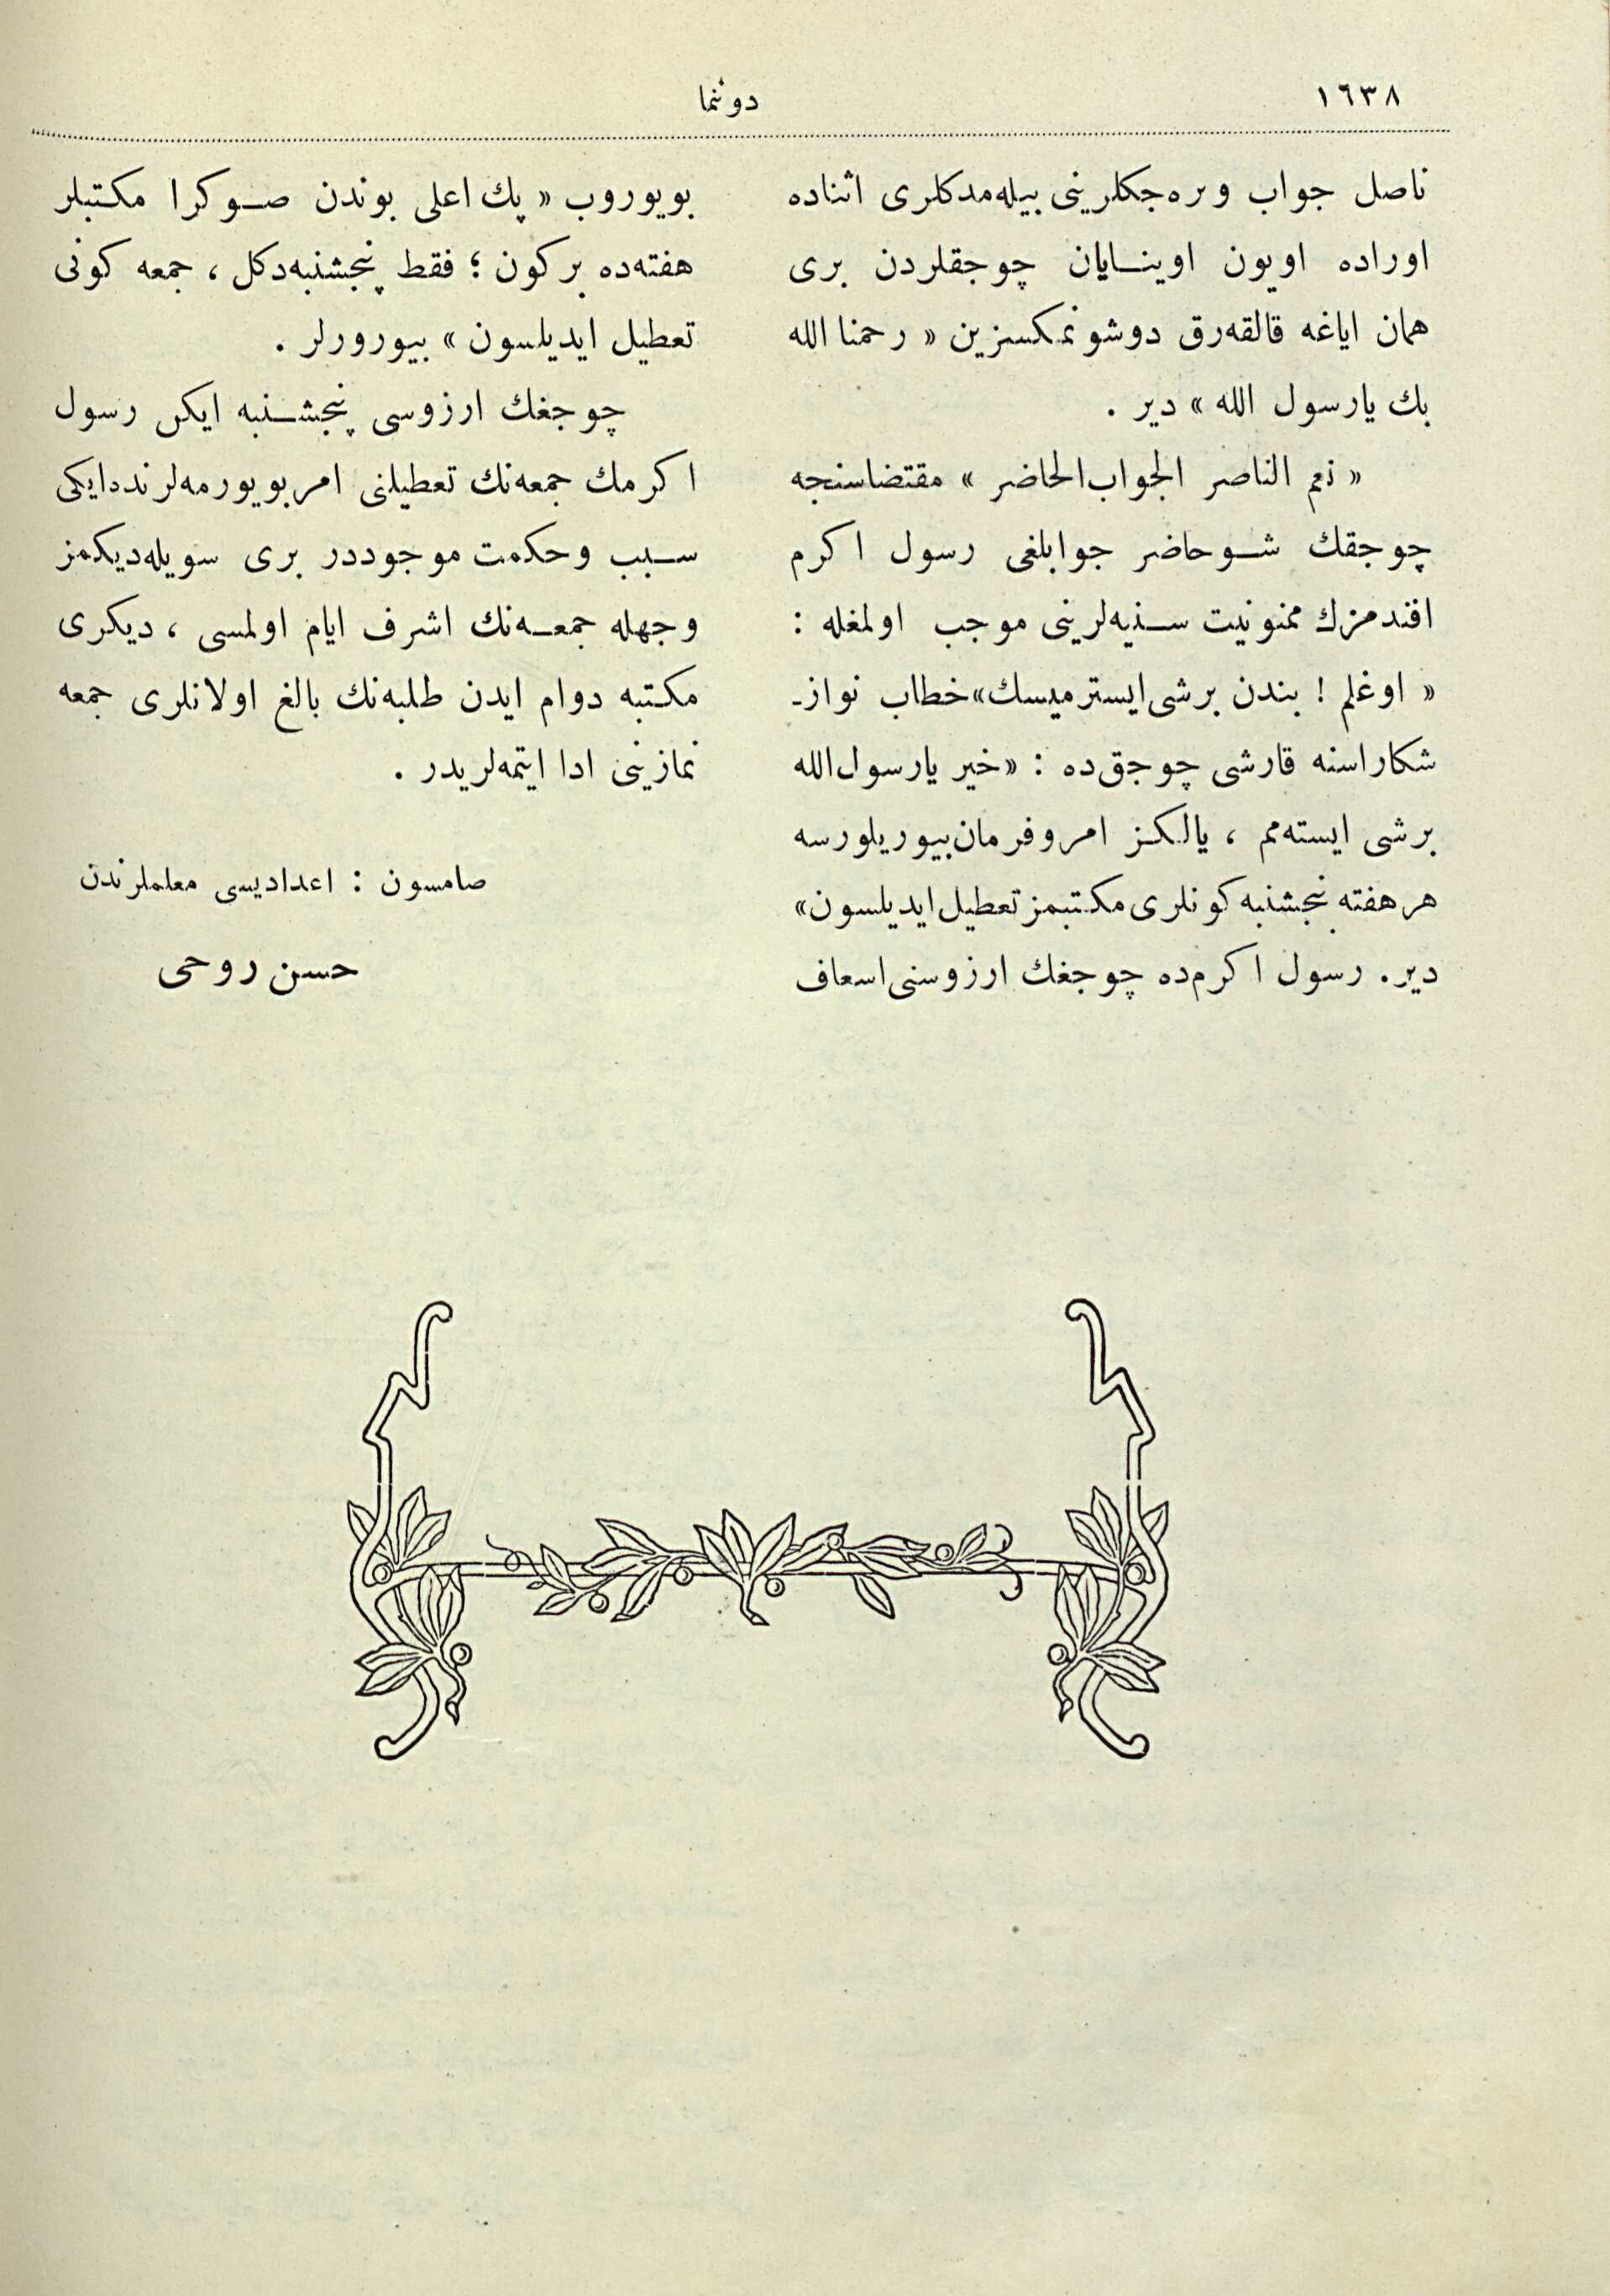 ١٦٣٨
دونما
ناصل جواب ویره‌جكلرینی بیله‌مدكلری اثناده
اوراده اویون اوینایان چوجقلردن بری
همان ایاغه قالقه‌رق دوشونمكسزین « رحمنا الله
بك یارسول الله » دیر .
« نعم الناصر الجواب الحاضر » مقتضاسنجه
چوجقك شو حاضر جوابلغی رسول اكرم
افندمزك ممنونیت سنیه‌لرینی موجب اولمغله :
« اوغلم ! بندن برشی ایسترمیسك» خطاب نواز-
شكاراسنه قارشی چوجق‌ده : «خیر یارسول الله
برشی ایسته‌مم ، یالكز امروفرمان بیوریلورسه
هر هفته پنجشنبه كونلری مكتبمز تعطیل ایدیلسون»
دیر. رسول اكرم‌ده چوجغك ارزوسنی اسعاف
بویوروب « پك اعلی بوندن صوكرا مكتبلر
هفته‌ده بركون ؛ فقط پنجشنبه‌دكل ، جمعه كونی
تعطیل ایدیلسون » بیورورلر .
چوجغك ارزوسی پنجشنبه ایكن رسول
اكرمك جمعه‌نك تعطیلنی امر بویورمه‌لرنده‌ایكی
سبب وحكمت موجوددر بری سویله‌دیكمز
وجهله جمعه‌نك اشرف ایام اولمسی ، دیكری
مكتبه دوام ایدن طلبه‌نك بالغ اولانلری جمعه
نمازینی ادا ایتمه‌لریدر .
صامسون : اعدادیسی معلملرندن
حسن روحی